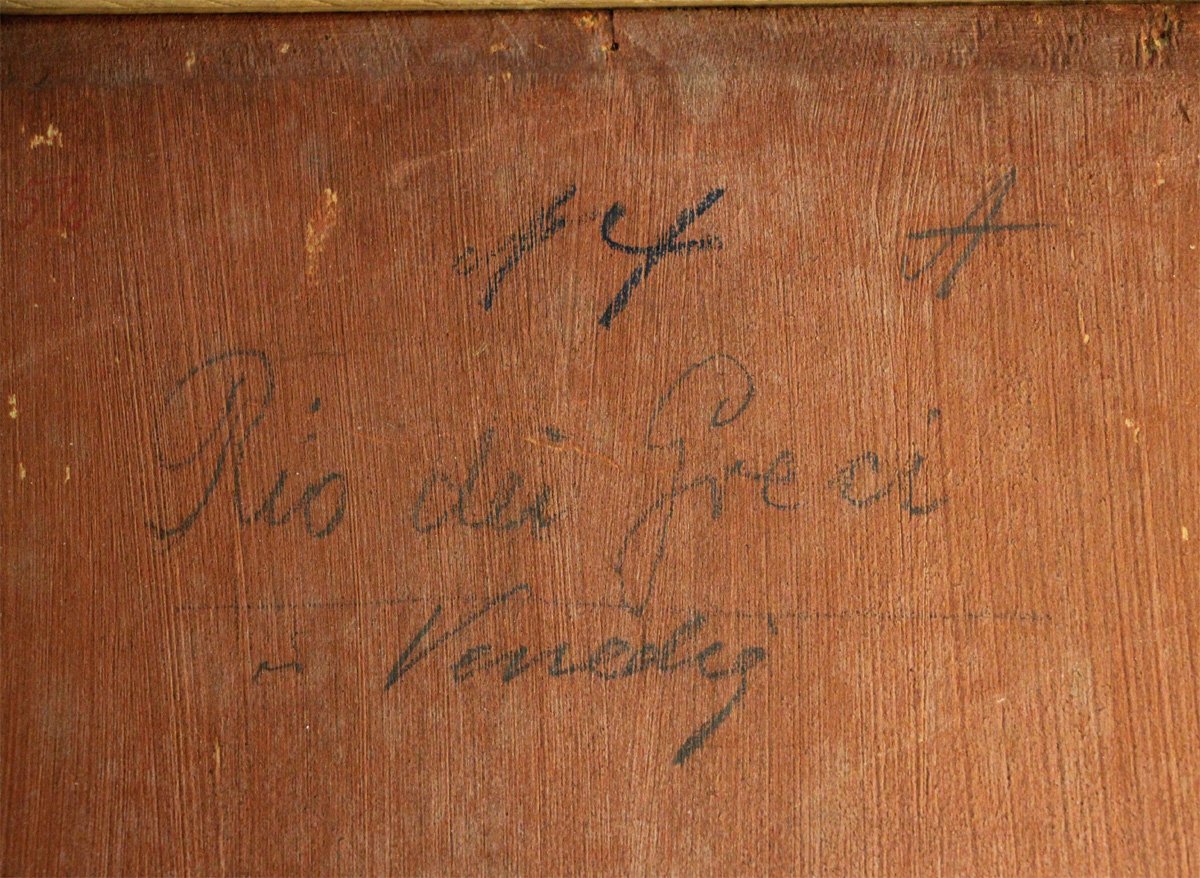 14 A
Rio dei Greci
Venedig